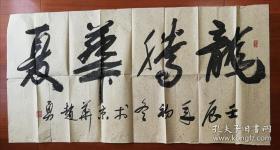 龍騰華夏
壬辰年初冬於京華趙